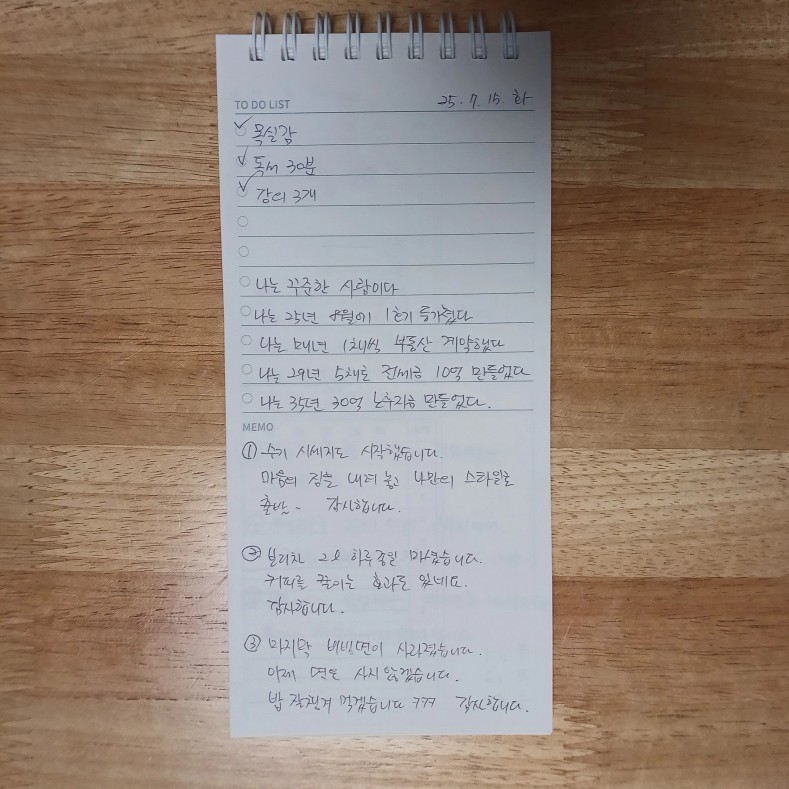 TO DO LIST
25. 7. 15. 화
목실감
독서 30분
강의 3개
나는 꾸준한 사람이다
나는 25년 8월에 1호기 등기쳤다
나는 매년 1채씩 부동산 계약했다
나는 29년 5채로 전세금 10억 만들었다
나는 35년 30억 노후자금 만들었다.
MEMO
① 수기 시세지도 시작했습니다.
마음의 짐을 내려 놓고 나만의 스타일로
출발~ 감사합니다.
② 보리차 2L 하루종일 마셨습니다.
커피를 줄이는 효과도 있네요.
감사합니다.
③ 마지막 비빔면이 사라졌습니다.
이제 면은 사지 않겠습니다.
밥 잘챙겨 먹겠습니다 ㅋㅋㅋ 감사합니다.